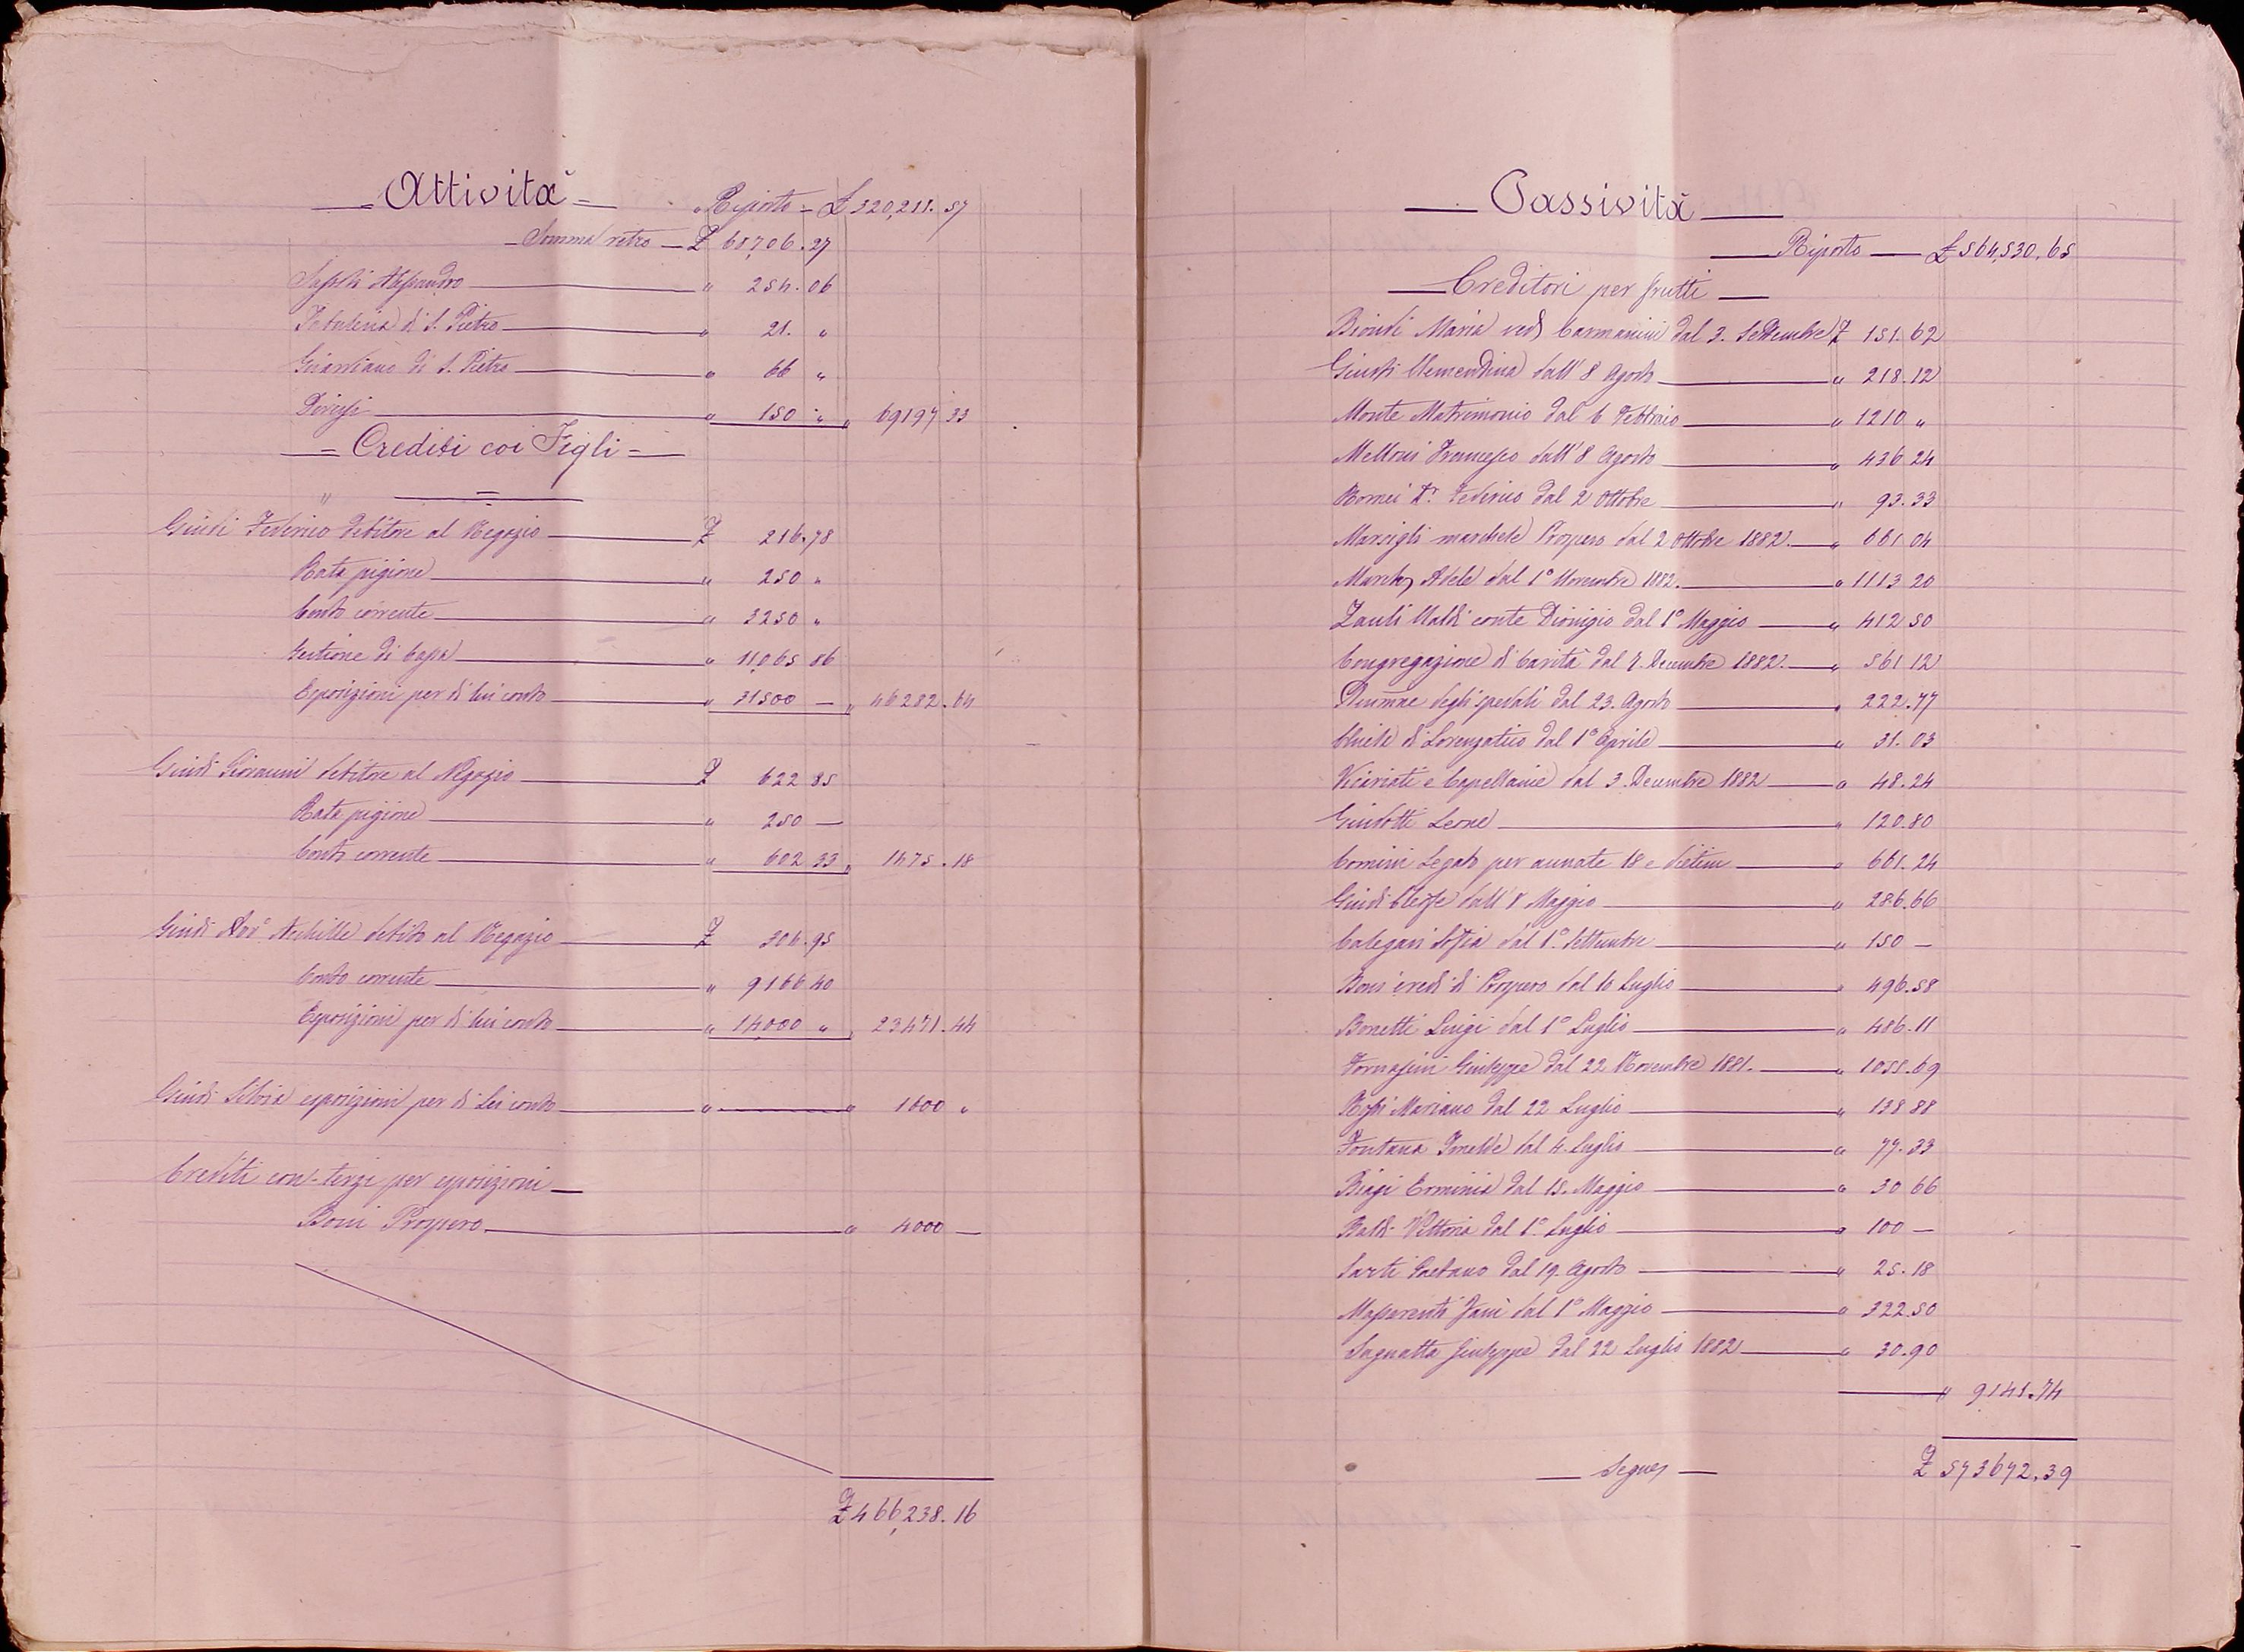 Attività
Riporto £ 320,211.57
Somma retro £ 68706.27
Alessandro " 254.06
di S. Pietro " 21. "
Guardiano di S. Pietro " 66 "
Diversi " 150 " " 69197 33
Crediti coi Figli
Guidi Federico debitore al Negozio £ 216.78
Rata pigione " 250 "
Conto corrente " 3250 "
Gestione di Cassa " 11,065 86
Esposizioni per di lui conto " 31500 — " 46282.64
Guidi Giovanni debitore al Negozio £ 622 85
Rata pigione " 250 —
Conto corrente " 602 33 " 1475.18
Guidi Achille debito al Negozio £ 304.95
Conto corrente " 9166 40
Esposizioni per di lui conto " 14,000 " " 23471.44
Guidi Silvia esposizioni per di Lei conto " " 1600 "
Crediti con terzi per esposizioni
Boni Prospero " 4000 —
£ 466,238.16
Passività
Riporto £ 564,530.65
Creditori per frutti
Biondi Maria ved. Carmanini dal 3. Settembre £ 151.62
Giusti Clementina dall' 8 Agosto " 218.12
Monte Matrimonio dal 6 Febbraio " 1210 "
Melloni Francesco dall' 8 Agosto " 436 24
Dr. Federico dal 2 Ottobre " 93.33
Marsigli marchese Prospero dal 2 Ottobre 1882. " 661 04
Adele dal 1° Novembre 1882. " 1113 20
Zauli Naldi conte Dionigio dal 1° Maggio " 412 50
Congregazione di Carità dal 7. Decembre 1882. " 561 12
degli spedali dal 23. Agosto " 222.77
di Lorenzatico dal 1° Aprile " 31.03
Vicariati e Capellanie dal 3. Decembre 1882 " 48.24
Guidotti Leone " 120.80
Comini Legato per annate 18 e dietim " 601.24
Guidi dall' 8 Maggio " 286.66
Calegari Sofia dal 1° Settembre " 150 —
Boni eredi di Prospero dal 10 Luglio " 496.58
Bonetti Luigi dal 1° Luglio " 486.11
Fornasini Giuseppe dal 22 Novembre 1881. " 1055.69
Rossi Mariano dal 22 Luglio " 138 88
Fontana Imelde dal 4. Luglio " 77.33
Biagi Erminia dal 15. Maggio " 30 66
Baldi Vittoria dal 1° Luglio " 100 —
Sarti Gaetano dal 19. Agosto " 25.18
Massarenti dal 1° Maggio " 322.50
Giuseppe dal 22 Luglio 1882 " 30.90
" 9141.74
Segue £ 573672.39